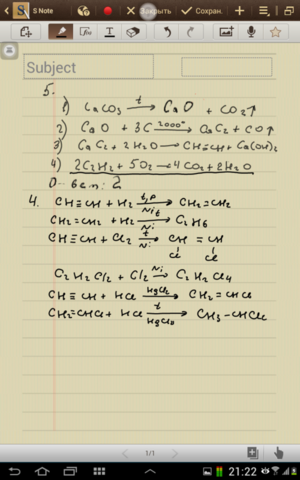 S Note
Закрыть
Сохран.
Subject
5.
1) CaCO3 —t→ CaO + CO2↑
2) CaO + 3C —2000°→ CaC2 + CO↑
3) CaC2 + 2H2O → CH≡CH + Ca(OH)2
4) 2C2H2 + 5O2 → 4CO2 + 2H2O
2
4. CH≡CH + H2 —t,p Ni→ CH2=CH2
CH2=CH2 + H2 —Ni t→ C2H6
CH≡CH + Cl2 —t Ni→ CH = CH
Cl Cl
C2H2Cl2 + Cl2 —Ni→ C2H2Cl4
CH≡CH + HCl —HgCl2→ CH2=CHCl
CH2=CHCl + HCl —t HgCl2→ CH3-CHCl2
1/1
21:22